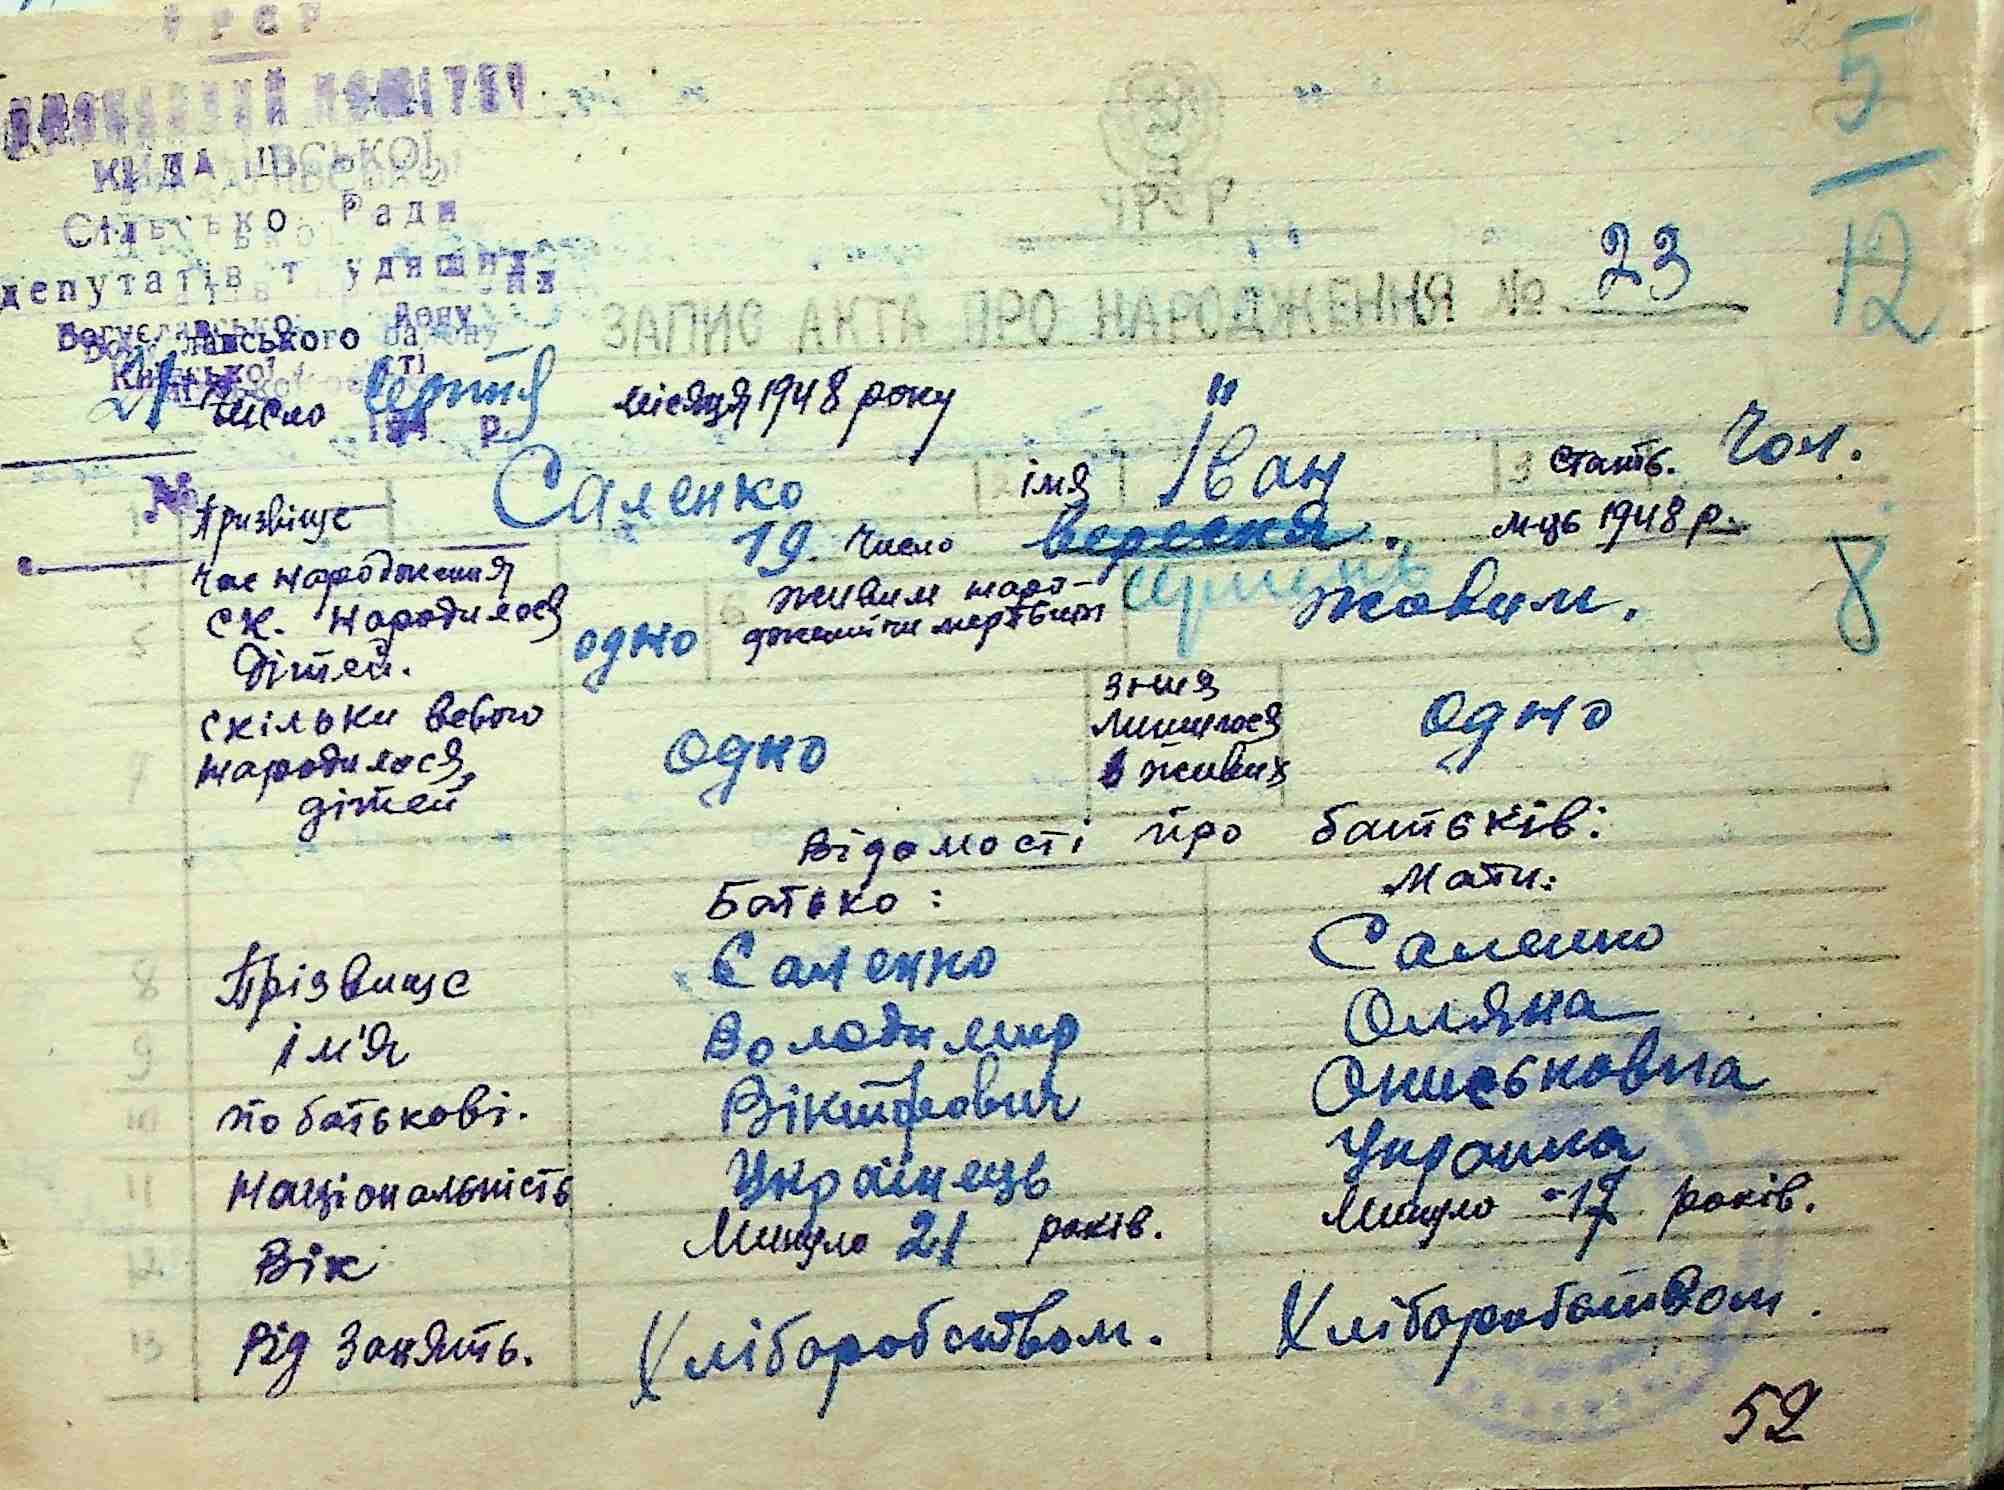 УРСР
КИДАНІВСЬКОЇ
Сільсько Ради
депутатів т удящих
Богуславського району
Київської
194 р.
№
УРСР
5
12
8
ЗАПИС АКТА ПРО НАРОДЖЕННЯ № 23
21 число серпня місяця 1948 року
1 Призвіще Саленко 2 імя Іван 3 стать. Чол.
4 Час народження 19. Число вересня. м-ць 1948 р.
серпень
5 ск. народилося дітей. одно 6 живим наро-джений чи мертвим живим.
7 скільки всього народилося дітей одно з них лишилося в живих одно
Відомості про батьків:
Батько: Мати:
8 Прізвище Саленко Саленко
9 ім'я Володимир Оляна
10 по батькові. Ониськовна
11 Національність Українець Українка
12 Вік Минуло 21 років. Минуло 17 років.
13 Рід занять. Хліборобством. Хліборобством.
52